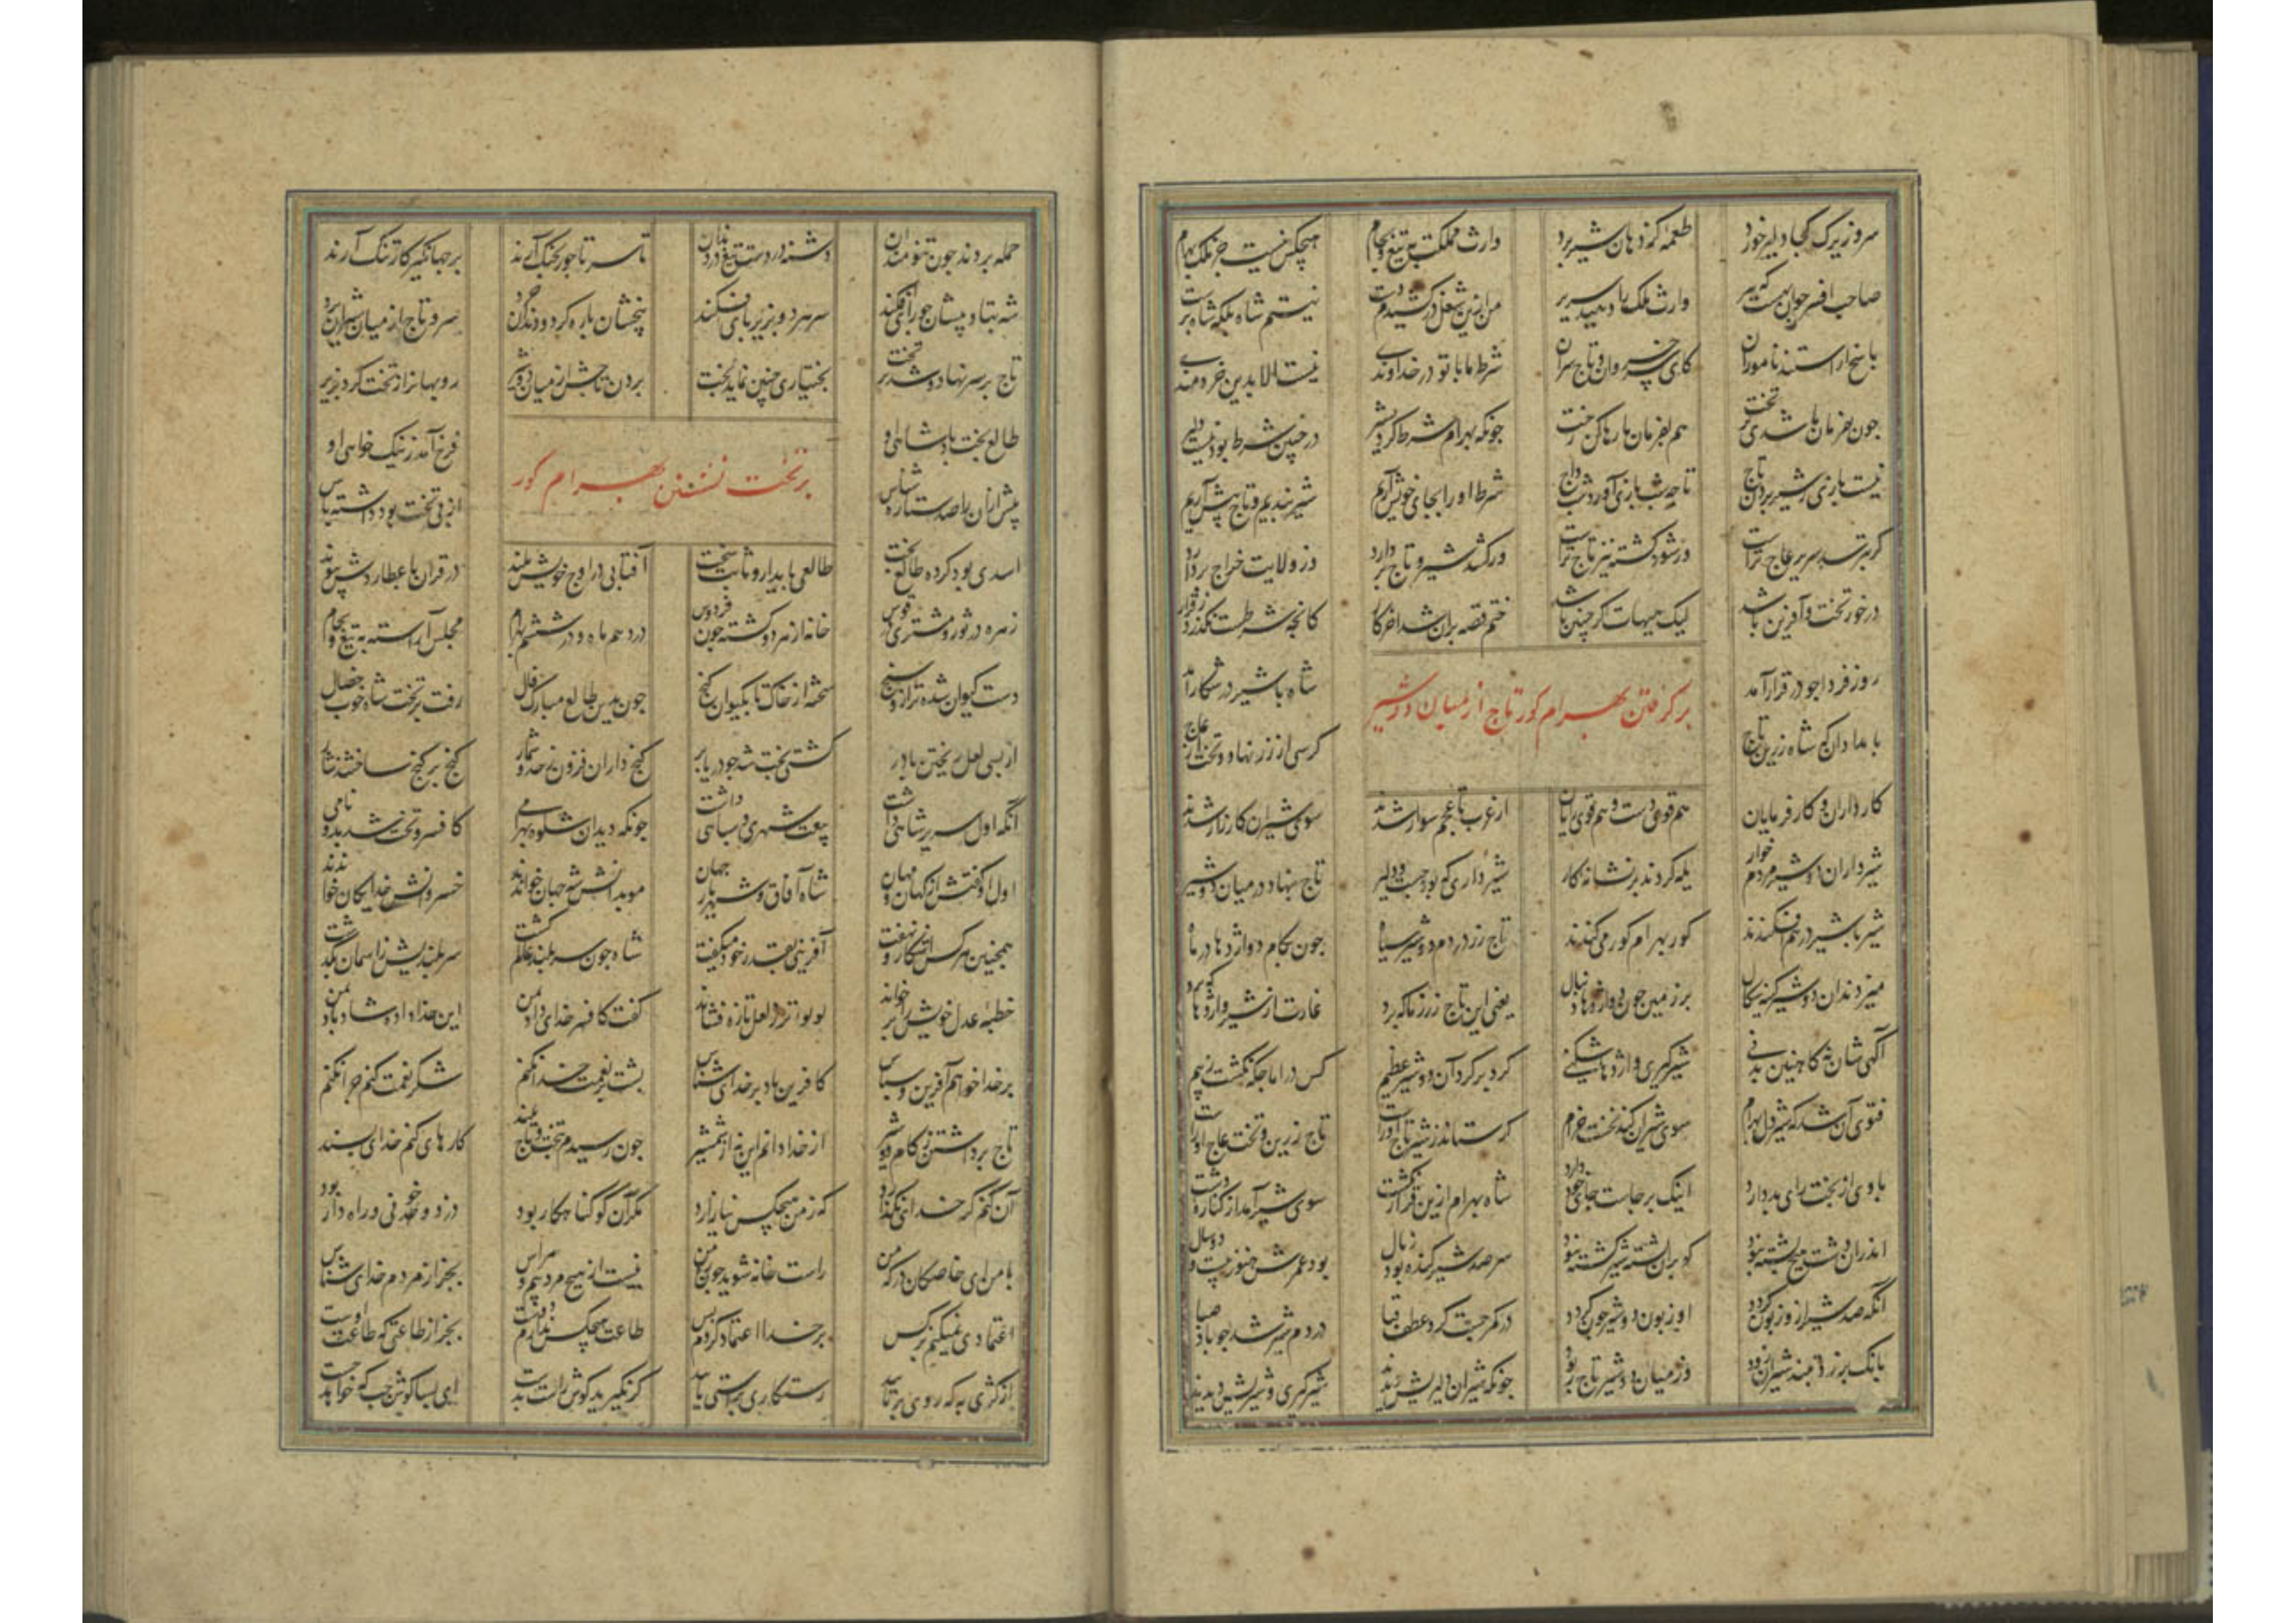 سروزیرک کجا دلیر خورد طعمه کز دهان شیر برد وارث مملکت به تیغ و جام هیچکس نیست جز ملک بهرام
صاحب افسر جوان بهست که پیر وارث ملک را دهید سریر من ازین شغل درکشیدم دست نیستم شاه بلکه شاه پرست
پاسخ اراستند ناموران کای سر خسروان و تاج سران شرط ما با تو در خداوندی نیست الا بدین خردمندی
چون بفرمان ما شدی بر تخت هم بفرمان ما رها کن رخت چونکه بهرام شرط کرد پسر در چنین شرط بود نیست دلیر
نیست بازی ز شیر بردن تاج تا چه شب بازی آورد شب داج شرط او را بجای خویش آریم شیر بندیم و تاج پیش آریم
گر بترسد سریر عاج تراست ور شود کشته نیز تاج تراست ور کشد شیر و تاج بردارد وز ولایت خراج بردارد
درخور تخت و آفرین باشد لیک هیهات اگر چنین باشد ختم قصه بران شد اخر کار کانچه شرطست نگذرد ز قرار
روز فردا چو در قرار آمد شاه با شیر در شکار آمد
برگرفتن بهرام گور تاج از میان دو شیر
بامدادان که شاه زرین تاج کرسی از زر نهاد و تخت از عاج
کارداران و کارفرمایان هم قوی دست و هم قوی رایان از عرب تا عجم سوار شدند سوی شیران کارزار شدند
شیرداران دو شیر مردم خوار یله کردند بر نشانه کار شیر داری که بود چست و دلیر تاج بنهاد در میان دو شیر
شیر با شیر درهم افکندند گور بهرام گور می کندند تاج زر در دم دو شیر سیاه چون بکام دو اژدها در ماه
میزدند آن دو شیر کینه سگال بر زمین چون دو اژدها دنبال یعنی این تاج زر ز ما که برد غارت از شیر و اژدها که برد
آگهی شان نه کاهنین بدنی شیرگیری و اژدها شکنی گرد بر گرد آن دو شیر عظیم کس در اماجگه نگشت ز بیم
فتوی آن شد که شیردل بهرام سوی شیران کند نخست خرام گر ستاند ز شیر تاج اوراست تاج زرین و تخت عاج اوراست
با وی از بخت رای بد دارد اینک برجاست جای خود دارد شاه بهرام ازین قرار نگشت سوی شیر آمد از کناره دشت
اندران دشت هیچ پشته نبود کو بران پشته شیر کشته نبود سر صد شیر کنده بود ز یال بود عمرش هنوز بیست و دو سال
آنکه صد شیر ازو زبون گردد او زبون دو شیر چون گردد در کمر چست کرد عطف قبا در دم شیر شد چو باد صبا
بانگ برزد به تند شیران زود وز میان دو شیر تاج ربود چونکه شیران دلیریش دیدند شیرگیری و شیریش دیدند
حمله بردند چون تنومندان دشنه در دست و تیغ در دندان تا سر تاجور بچنگ آرند بر جهانگیر کار تنگ آرند
شه بتادیبشان چو رای افکند سر هر دو بزیر پای افکند پنجشان پاره کرد و دندان خرد سر و تاج از میان شیران برد
تاج بر سر نهاد و شد بر تخت بختیاری چنین نماید بخت بردن تاجش از میان دو شیر روبهانرا ز تخت کرد بزیر
طالع بخت پادشاهی او فرخ آمد ز نیک خواهی او
بر تخت نشستن بهرام گور
پیش ازان راصد ستاره شناس از پی تخت بود داشته پاس
اسدی بود کرده طالع بخت طالعی پایدار و ثابت سخت آفتابی در اوج خویش بلند در قران با عطارد پیوند
زهره در ثور و مشتری در قوس خانه از هر دو گشته چون فردوس در دهم ماه و در ششم بهرام مجلس آراسته به تیغ و جام
دست کیوان شده ترازو سنج سخته از خاک تا بکیوان گنج چون بدین طالع مبارک فال رفت بر تخت شاه خوب خصال
از بسی لعل ریختن با در کشتی بخت شد چو دریا پر گنج داران فزون ز حد و شمار گنج بر گنج ساختند نثار
آنکه اول سریر شاهی داشت بیعت شهری و سپاهی داشت چونکه دید آن شکوه بهرامی کافسر و تخت شد بدو نامی
اول او گفتش از کهان و مهان شاه آفاق و شهریار جهان موبدانش شه جهان خواندند خسروانش خدایگان خواندند
همچنین هر کس آشکار و نهفت آفرینی بقدر خود میگفت شاه چون سربلند عالم گشت سربلندیش ز آسمان بگذشت
خطبه عدل خویشتن بر خواند لولو تر ز لعل تازه فشاند گفت کافسر خدای داد بمن این خداداد شاد باد بمن
بر خدا خوانم آفرین و سپاس کافرین باد بر خدای شناس پشت بر نعمت خدا نکنم شکر نعمت کنم چرا نکنم
تاج برداشتن ز کام دو شیر از خدا دانم این نه از شمشیر چون رسیدم بتخت و تاج بلند کارهای کنم خدای پسند
آن کنم گر خدای بگذارد که ز من هیچکس نیازارد مگر آن کو گناهکار بود دزد و خونی و راه دار بود
با من ای خاصگان درگه من راست خانه شوید چون ره من نیست از هیچ مردمم هراس بجز از مردم خدای شناس
اعتمادی نمیکنم بر کس بر خدا اعتماد کردم بس طاعت هیچکس ندارم دوست بجز از طاعتی که طاعت اوست
از کژی به که روی برتابید رستگاری براستی یابید گر نگیرید گوش راست بدست ای بسا گوش چپ که خواهد خست